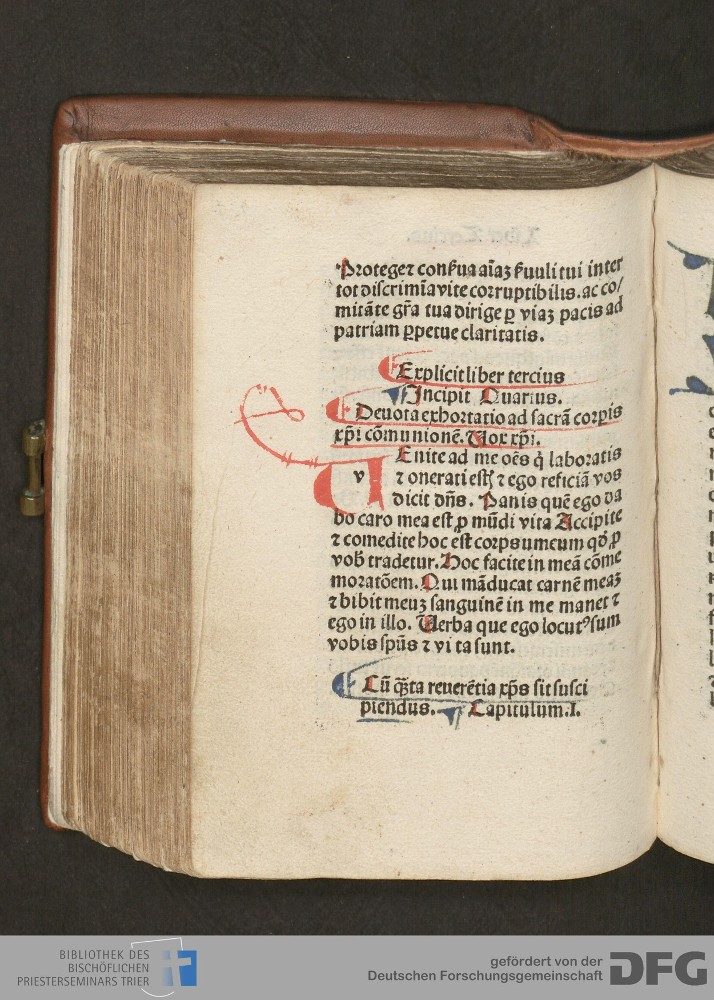 Protege ⁊ conẜua aīaꝫ ẜuuli tui inter
tot discrimīa vite corruptibilis. ac co/
mitāte gr̄a tua dirige ꝑ viaꝫ pacis ad
patriam ꝑpetue claritatis.
Explicit liber tercius
Incipit Quarius.
Deuota exhortatio ad sacrā corpis
xp̄i cōmunionē. Uox xp̄i.
Enite ad me oēs q̇ laboratis
v ⁊ onerati estꝭ ⁊ ego reficiā vos
dicit dn̄s. Panis quē ego da
bo caro mea est ꝓ mūdi vita Accipite
⁊ comedite hoc est corpus meum qd̄ ꝓ
vob̄ tradetur. Hoc facite in meā cōme
moratōem. Qui māducat carnē meaꝫ
⁊ bibit meuꝫ sanguinē in me manet ⁊
ego in illo. Uerba que ego locutꝰ sum
vobis sp̄us ⁊ vi ta sunt.
Cū q̄ta reuerētia xp̄s sit susci
piendus. Capitulum .I.
BIBLIOTHEK DES
BISCHÖFLICHEN
PRIESTERSEMINARS TRIER
gefördert von der
Deutschen Forschungsgemeinschaft DFG